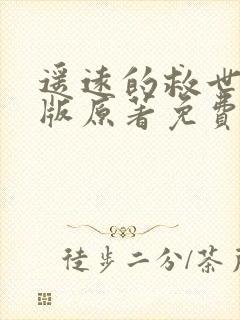 遥远的救世
版原著免費
徒步二分/茶戶